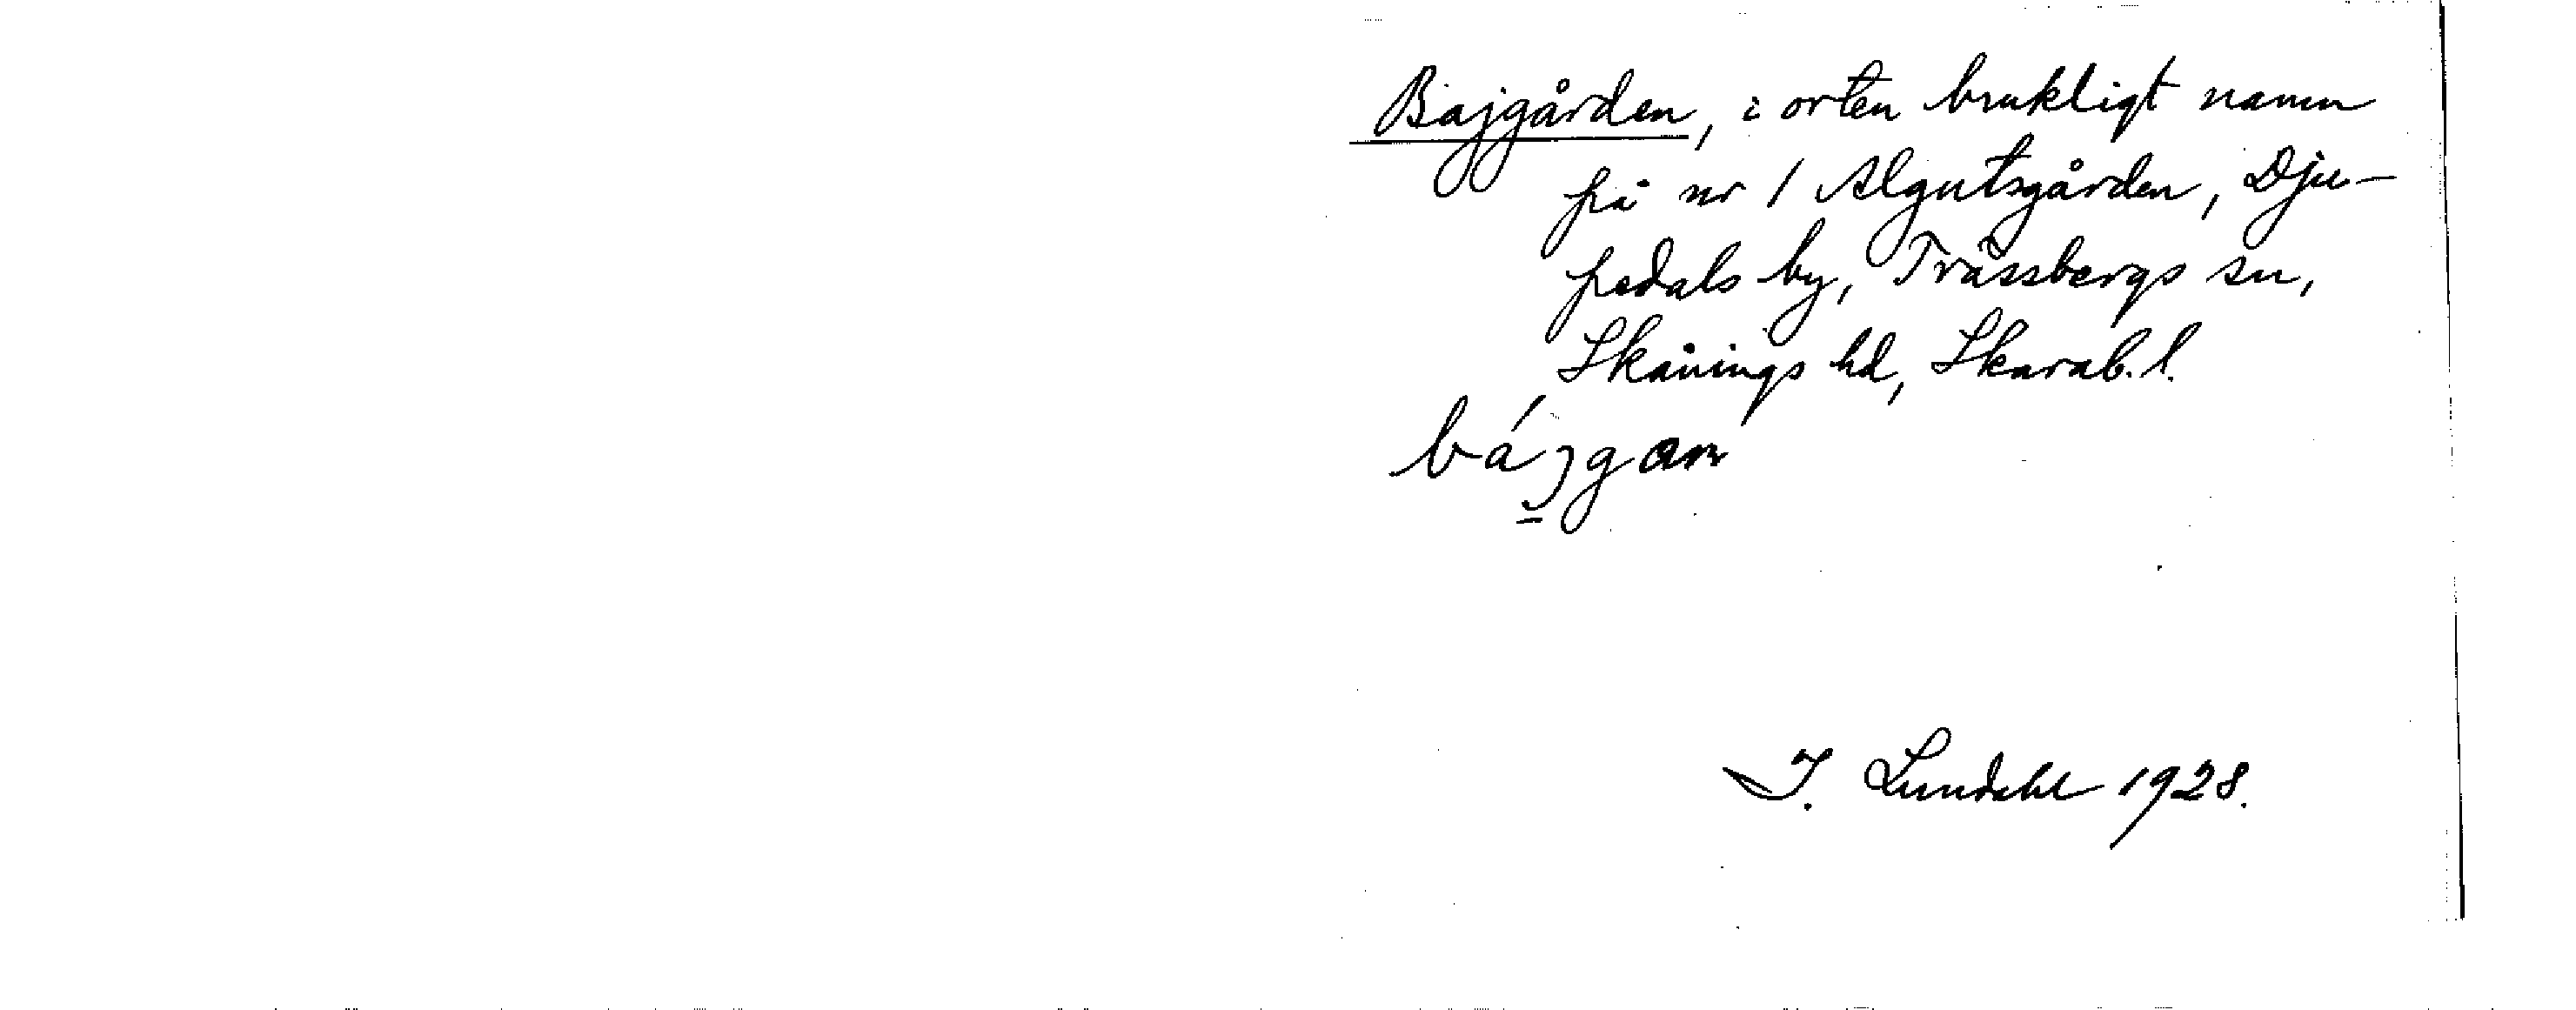 Bajgården, i orten brukligt namn
på nr 1 Algutsgården, Dju-
pedals by, Trässbergs sn,
Skånings hd, Skarab. l.
bájgan
I. Lundahl 1928.